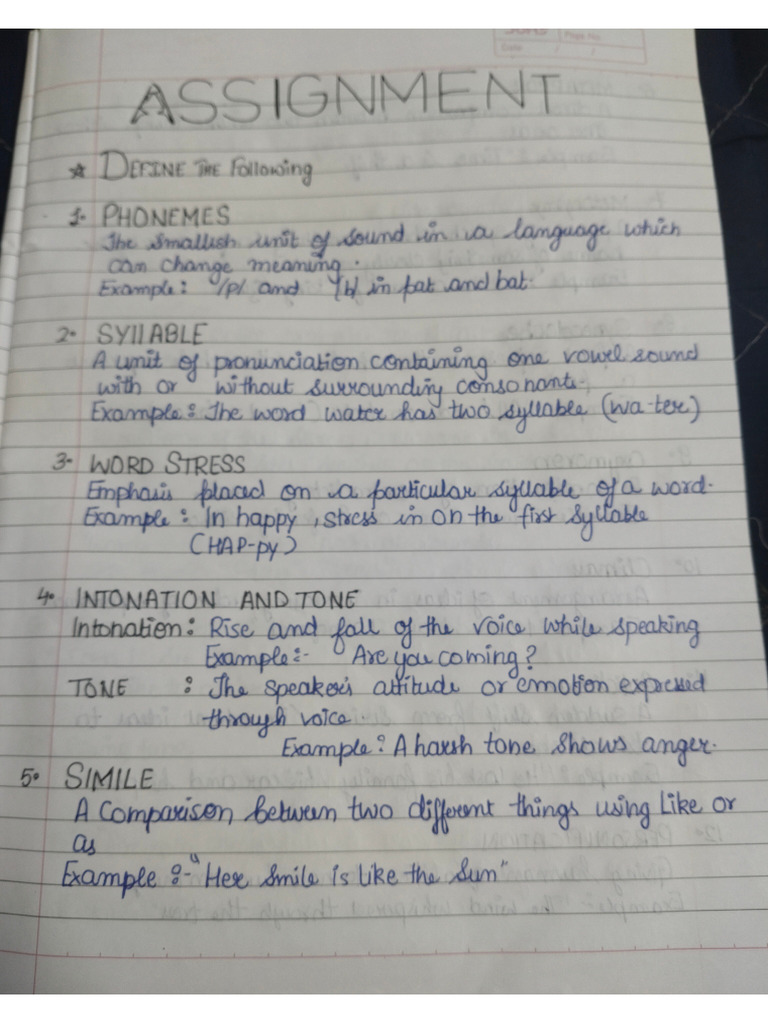 Page No.
Date / /
ASSIGNMENT
☆ DEFINE THE Following
1. PHONEMES
The smallish unit of sound in a language which
can change meaning.
Example: /p/ and /b/ in pat and bat.
2. SYllABLE
A unit of pronunciation containing one vowel sound
with or without surrounding consonants.
Example: The word water has two syllable (wa-ter)
3. WORD STRESS
Emphasis placed on a particular syllable of a word.
Example: In happy, stress in on the first syllable
(HAP-py)
4. INTONATION AND TONE
Intonation: Rise and fall of the voice while speaking
Example:- Are you coming?
TONE : The speaker's attitude or emotion expressed
through voice.
Example: A harsh tone shows anger.
5. SIMILE
A Comparison between two different things using Like or
as
Example:- "Her Smile is Like the Sun"